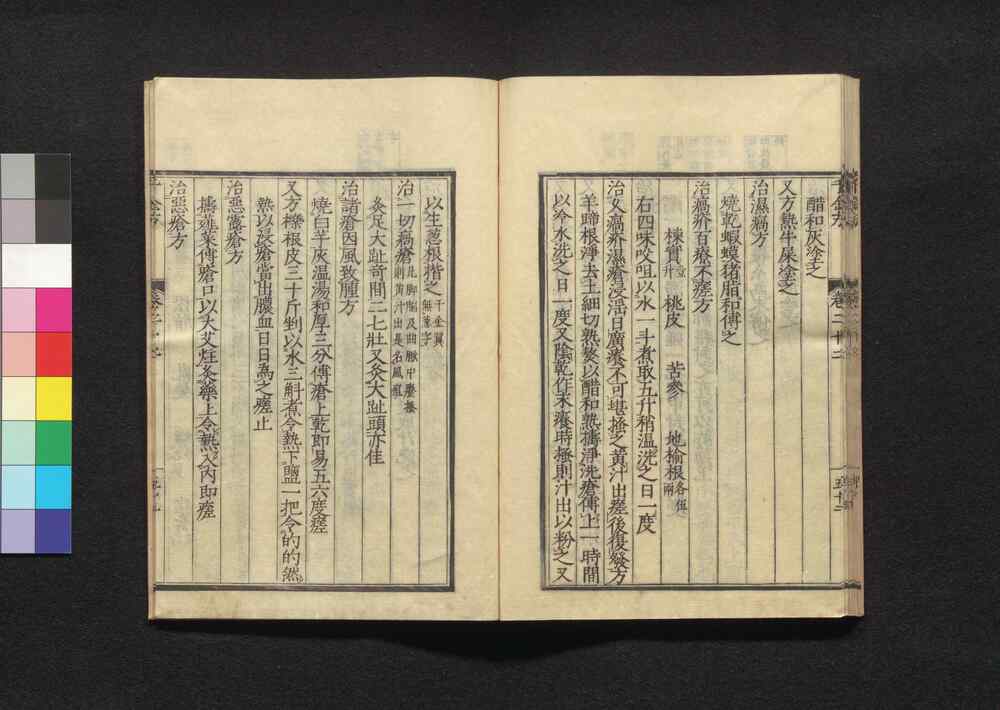 醋和灰塗之
又方熱牛屎塗之
治濕瘑方
燒乾蝦蟇猪脂和傅之
治瘑疥百療不瘥方
楝實一升 桃皮 苦參 地榆根各伍兩
右四味㕮咀以水一斗煮取五升稍温洗之日一度
治久瘑疥濕瘡浸淫日廣癢不可堪搔之黄汁出瘥後復發方
羊蹄根淨去土細切熟熬以醋和熟擣淨洗瘡傅上一時間
以冷水洗之日一度又陰乾作末癢時搔則汁出以粉之又
以生葱根揩之千金翼無葱字
治一切瘑瘡凡脚䐐及曲䐐中癢搔則黄汁出是名風疽
灸足大趾奇間二七壯又灸大趾頭亦佳
治諸瘡因風致腫方
燒白芋灰温湯和厚三分傅瘡上乾即易五六度瘥
又方櫟根皮三十斤剉以水三斛煮令熱下鹽一把令的的然
熱以浸瘡當出膿血日日為之瘥止
治惡露瘡方
擣薤菜傅瘡口以大艾炷灸藥上令熱入内即瘥
治惡瘡方
千金方
卷二十二
五十二